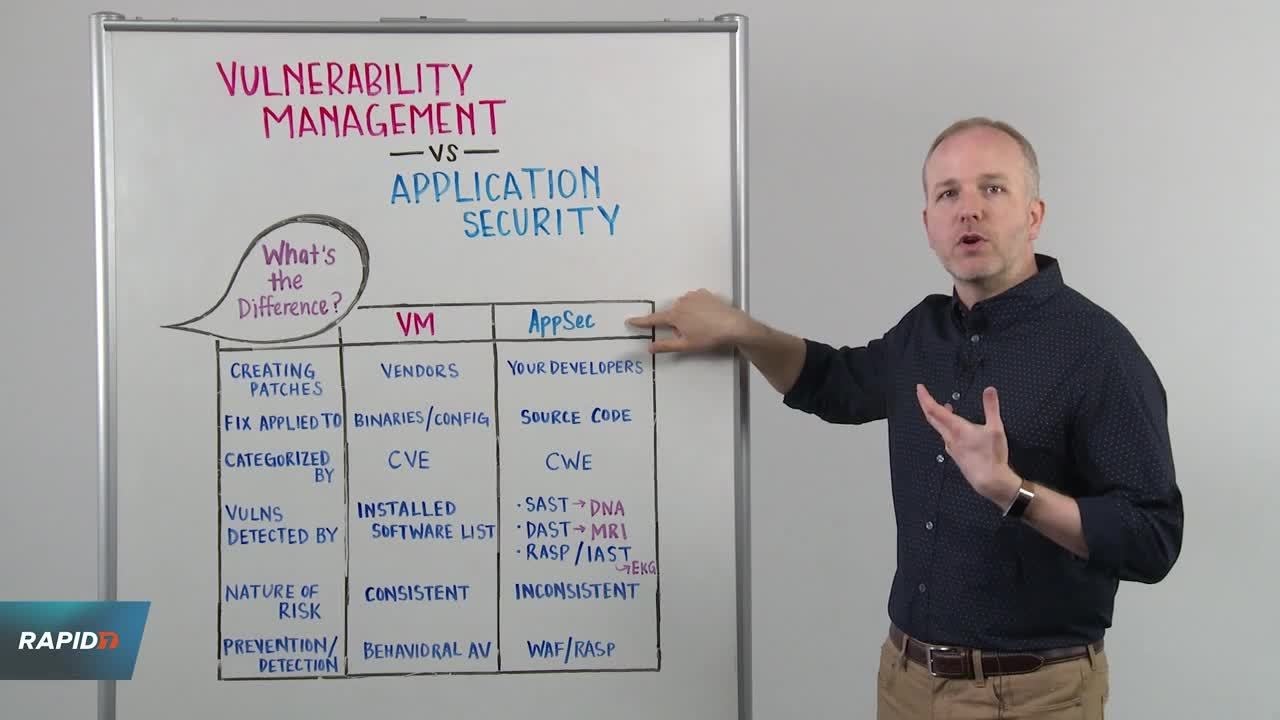 VULNERABILITY
MANAGEMENT
— VS —
APPLICATION
SECURITY
What's
the
Difference?
VM
AppSec
CREATING
PATCHES
VENDORS
YOUR DEVELOPERS
FIX APPLIED TO
BINARIES/CONFIG
SOURCE CODE
CATEGORIZED
BY
CVE
CWE
VULNS
DETECTED BY
INSTALLED
SOFTWARE LIST
· SAST → DNA
· DAST → MRI
· RASP / IAST
↪ EKG
NATURE OF
RISK
CONSISTENT
INCONSISTENT
PREVENTION/
DETECTION
BEHAVIORAL AV
WAF/RASP
RAPID7